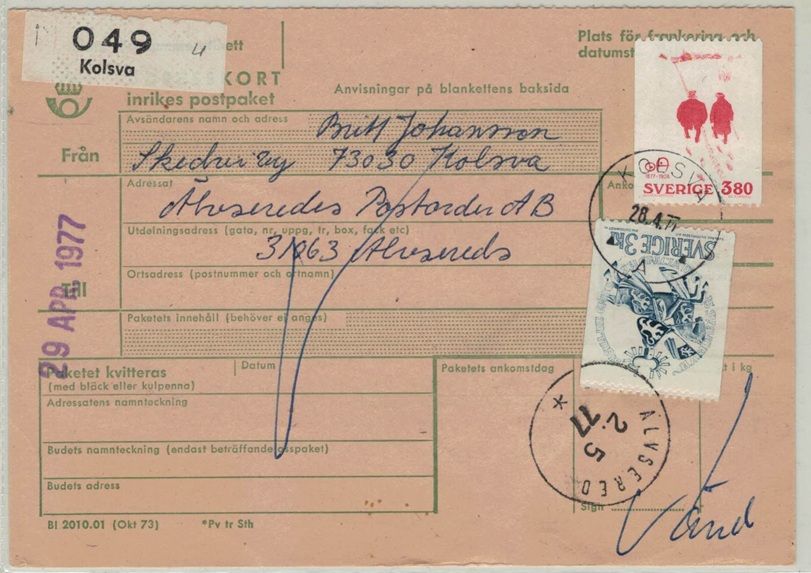 049
Kolsva
KORT
inrikes postpaket
Anvisningar på blankettens baksida
Plats för frankering och
Avsändarens namn och adress
Britt Johansson
Från
73030 Kolsva
Adressat
Älvsereds Postorder AB
Utdelningsadress (gata, nr, uppg, tr, box, fack etc)
31063 Älvsereds
Ortsadress (postnummer och ortnamn)
Till
29 APR 1977
Paketets innehåll (behöver ej anges)
SVERIGE 380
KOLSVA
28.4.77
SVERIGE 3KR
Paketet kvitteras
(med bläck eller kulpenna)
Datum
Paketets ankomstdag
t i kg
Adressatens namnteckning
Budets namnteckning (endast beträffande
Budets adress
ÄLVSERED
2.5
77
*
Sign
Vänd
Bl 2010.01 (Okt 73)
*Pv tr Sth